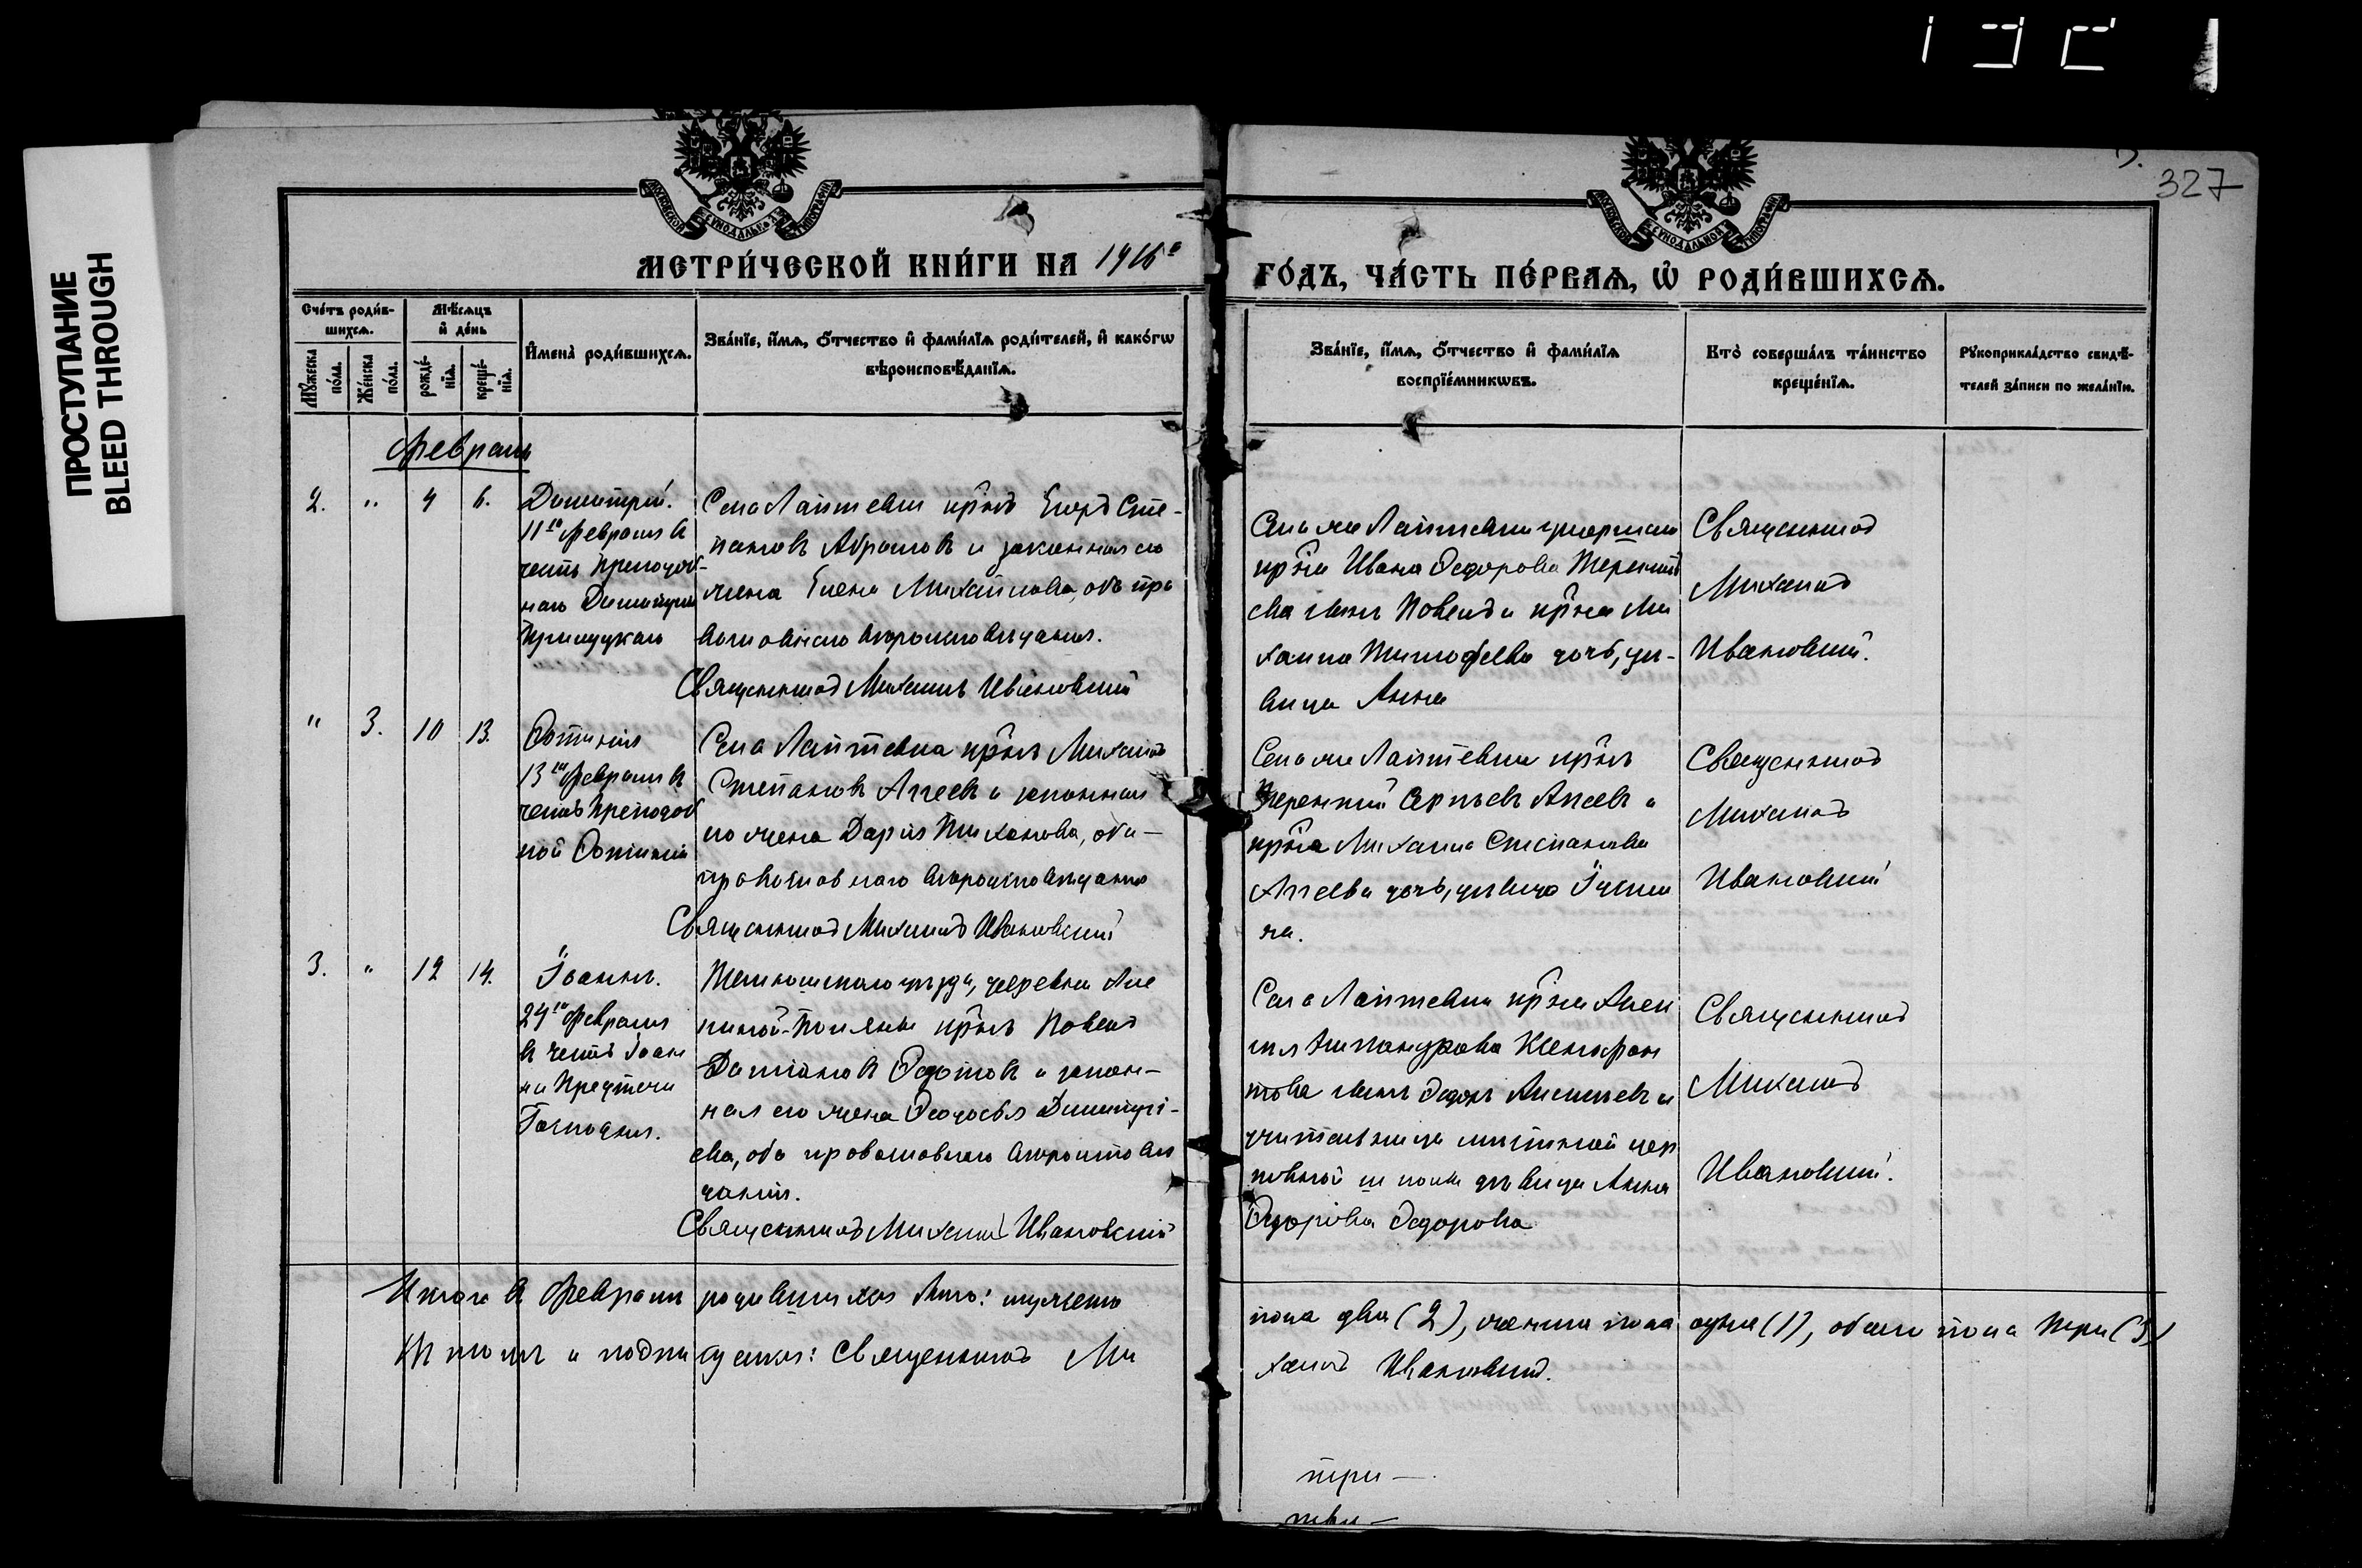 ПРОСТУПАНИЕ
BLEED THROUGH
327
МЕТРИ́ЧЕСКОЙ КНИ́ГИ НА 1916 г
ГО́ДЪ, ЧА́СТЬ ПЕ́РВАѦ, Ѡ҆ РОДИ́ВШИХСѦ.
Сче́тъ роди́в-
шихсѧ.
Мꙋ́жеска
по́ла.
Же́нска
по́ла.
Мѣ́сѧцъ
и҆ де́нь
рожде́-
нїѧ.
креще́-
нїѧ.
И҆мена̀ роди́вшихсѧ.
Зва́нїе, и҆́мѧ, ѻ҆́тчество и҆ фами́лїѧ роди́телей, и҆ како́гѡ
вѣроисповѣ́данїѧ.
Зва́нїе, и҆́мѧ, ѻ҆́тчество и҆ фами́лїѧ
воспрїе́мникѡвъ.
Кто̀ соверша́лъ та́инство
креще́нїѧ.
Рꙋкоприкла́дство свидѣ́-
телей за́писи по жела́нїю.
Февраль
2. " 4 6. Димитрій.
11го Февраля въ
честь Преподоб-
наго Димитрія
Прилуцкаго
Села Лаптевки кр-нъ Егоръ Сте-
пановъ Абрамовъ и законная его
жена Елена Михайлова, оба пра
вославнаго вѣроисповѣданія.
Священникъ Михаилъ Ивановскій
Села Лаптевки умершаго
кр-на Ивана Ѳедорова Терентье
ва сынъ Павелъ и кр-на Ми
хаила Тимофеева дочь, дѣ-
вица Анна
Священникъ
Михаилъ
Ивановскій.
" 3. 10 13. Фотинія
13го Февраля въ
честь Преподоб
ной Фотиніи
Села Лаптевка кр-нъ Михаилъ
Степановъ Агеевъ и законная
его жена Дарія Тиханова, оба
православнаго вѣроисповѣданія
Священникъ Михаилъ Ивановскій
Села Лаптевки кр-нъ
Терентій Сергѣевъ Агеевъ и
кр-на Михаила Степанова
Агеева дочь, дѣвица
Священникъ
Михаилъ
Ивановскій
3. " 12 14. Іоаннъ.
24го Февраля
въ честь Іоан
на Предтечи
Господня.
уѣзда, деревни
Поляны кр-нъ Павелъ
Даміановъ Ѳедотовъ и закон-
ная его жена Ѳеодосья Димитрі-
ева, оба православнаго вѣроисповѣ
данія.
Священникъ Михаилъ Ивановскій
Села Лаптевки кр-на Алек
сѧ Александрова Ксенофон
това сынъ Ѳедоръ Алексѣевъ и
учительница мѣстной цер
ковной школы дѣвица Анна
Ѳедорова Ѳедорова
Священникъ
Михаилъ
Ивановскій.
Итого въ Февралѣ родившихся было: мужеска
пола два (2), женска пола одна (1), обоего пола три (3)
Въ томъ и подписуемся: Священникъ Ми
хаилъ Ивановскій.
три —